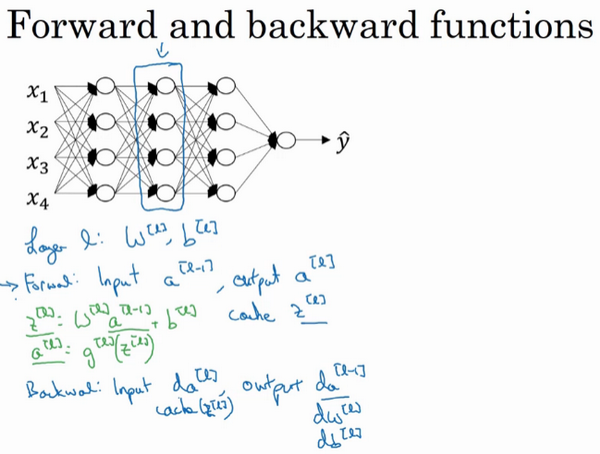 Forward and backward functions
x₁
x₂
x₃
x₄
ŷ
Layer l: W^[l], b^[l]
→ Forward: Input a^[l-1], output a^[l]
z^[l]: W^[l] a^[l-1] + b^[l] cache z^[l]
a^[l]: g^[l](z^[l])
Backward: Input da^[l], output da^[l-1]
cache (z^[l]) dW^[l]
db^[l]